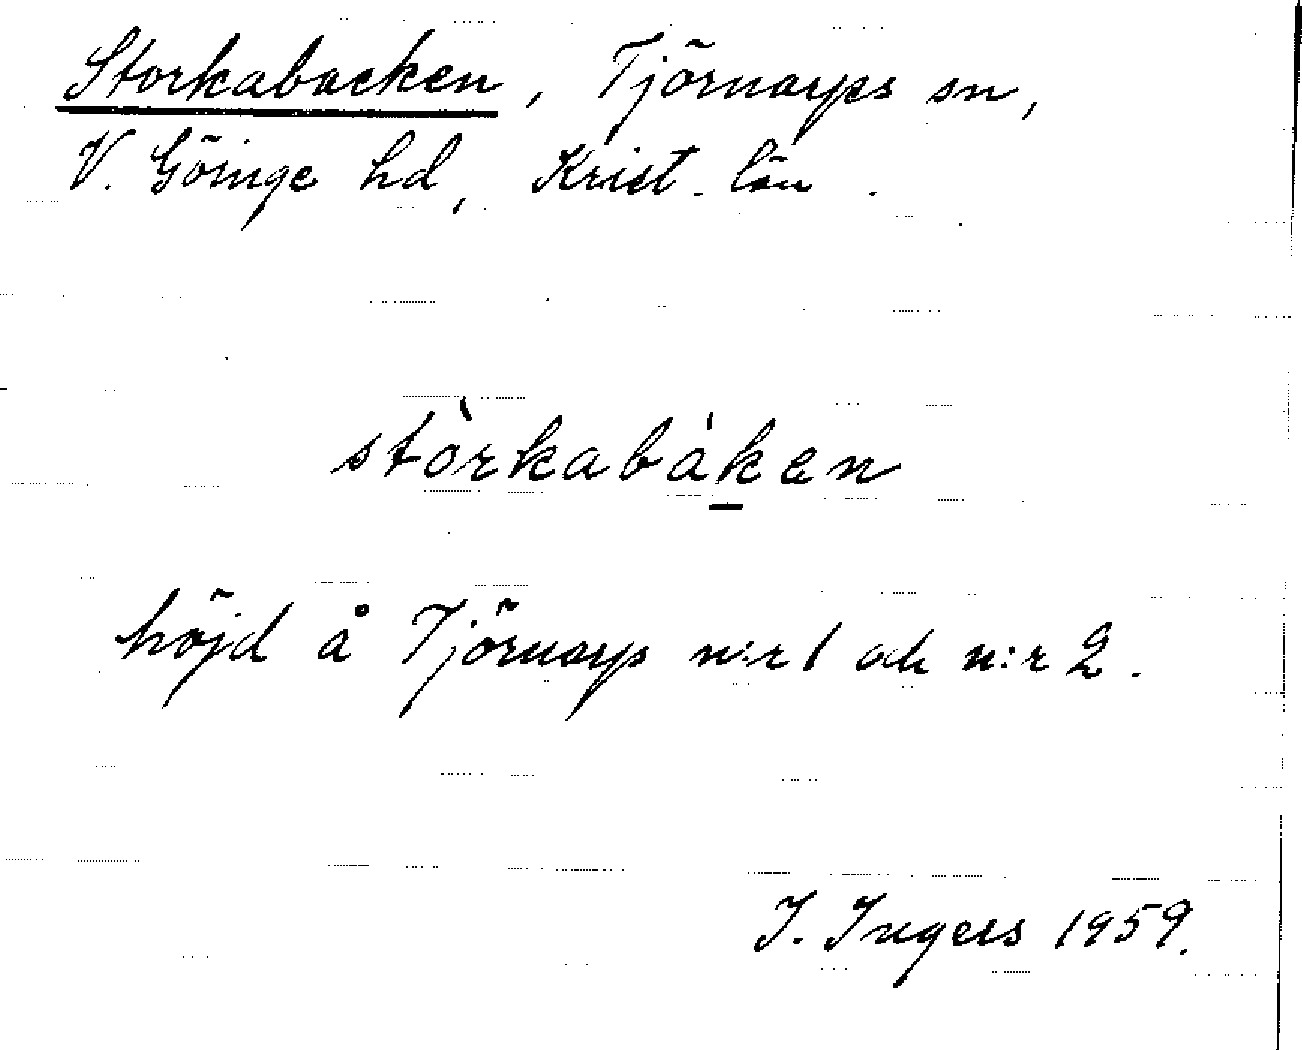 Storkabacken, Tjörnarps sn,
V. Göinge hd, Krist. län.
stòrkabák̲en
höjd å Tjörnarps n:r 1 och n:r 2.
I. Ingers 1959.